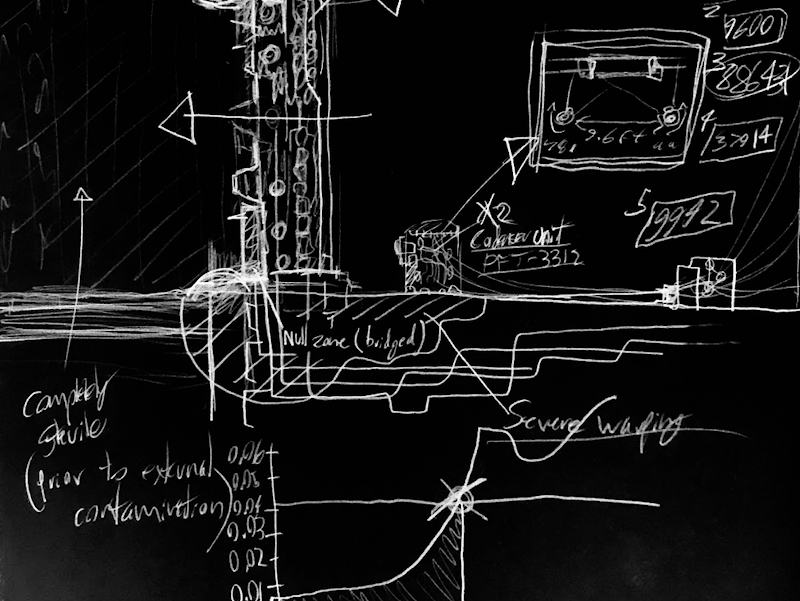 2
9600
3
4
37914
9.6ft
5
9942
X2
unit
PFT-3312
Null zone (bridged)
Completely
sterile
(prior to external
contamination)
Severe warping
0.06
0.05
0.04
0.03
0.02
0.01